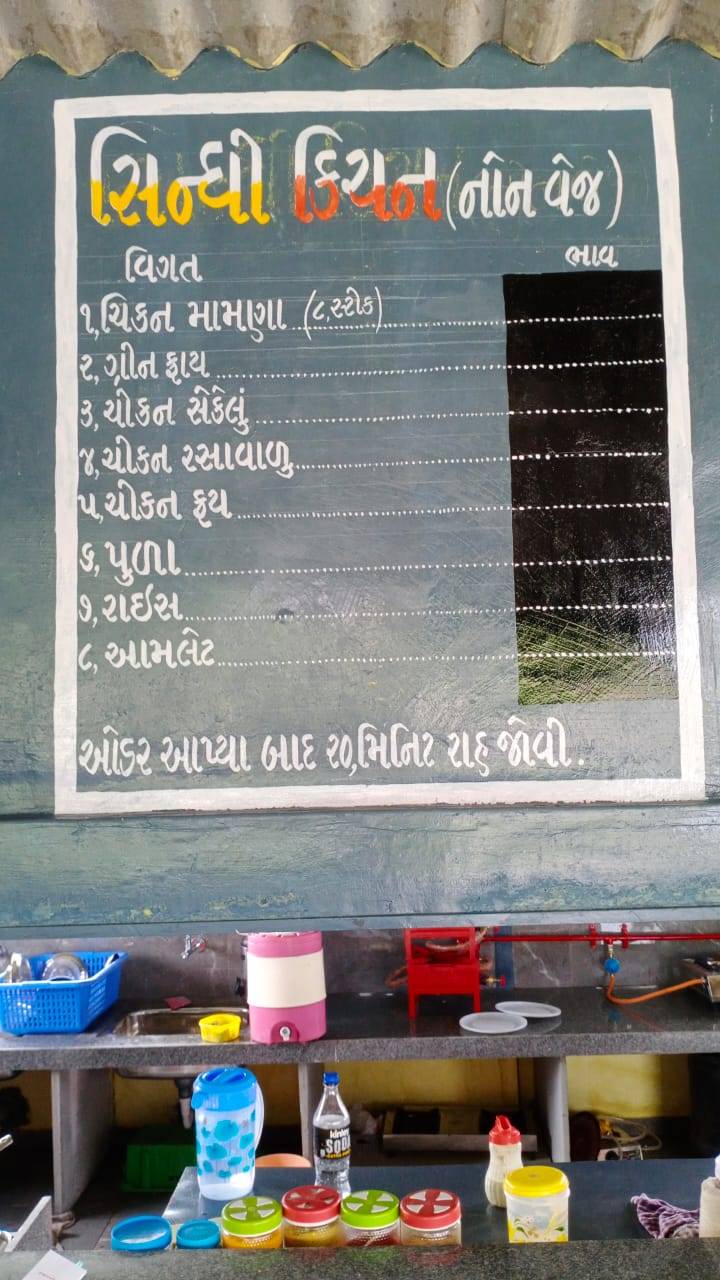 સિન્ધી કિચન (નોન વેજ)
વિગત ભાવ
૧,ચિકન મામણા (૮,સ્ટીક)
૨, ગ્રીન ફ્રાય
૩, ચીકન સેકેલું
૪,ચીકન રસાવાળુ
૫,ચીકન ફ્રાય
૬, પુળા
૭, રાઇસ
૮, આમલેટ
ઓડર આપ્યા બાદ ૨૦,મિનિટ રાહ જોવી.
kinley
SODA